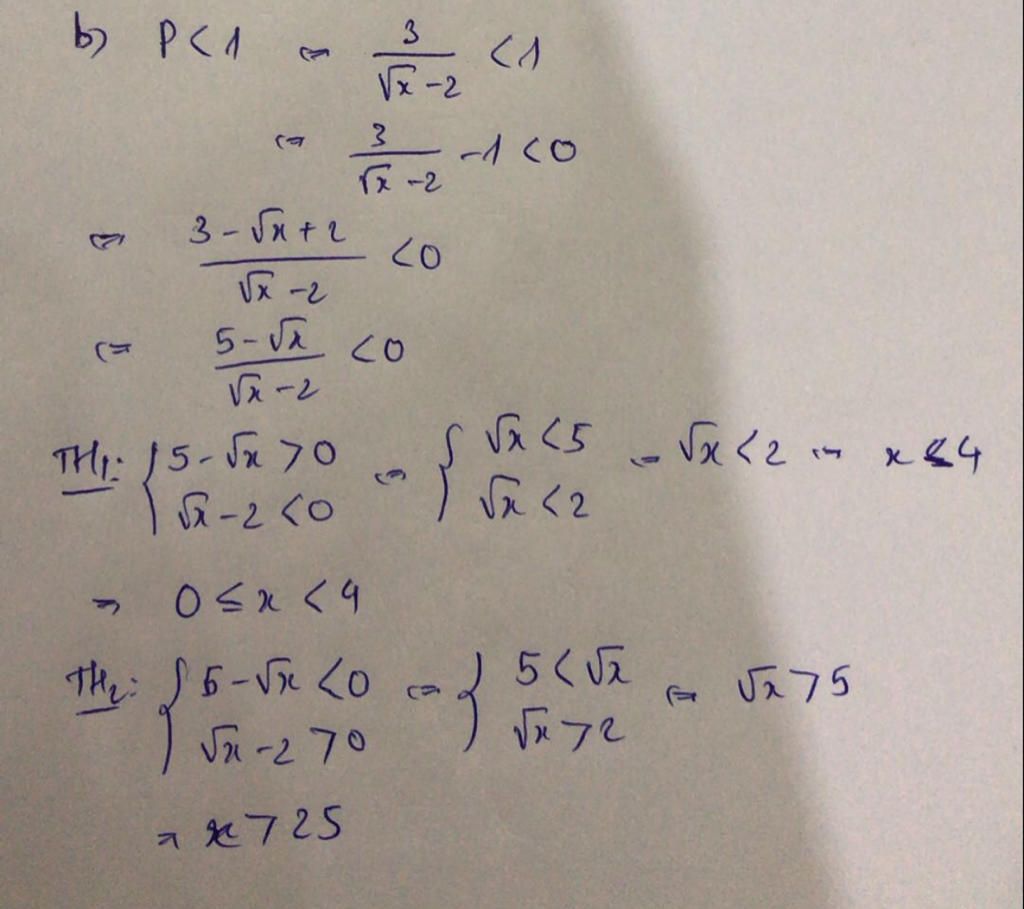 b) P < 1 ⇔ 3/(√x - 2) < 1
⇔ 3/(√x - 2) - 1 < 0
⇔ (3 - √x + 2)/(√x - 2) < 0
⇔ (5 - √x)/(√x - 2) < 0
TH1: { 5 - √x > 0 ; √x - 2 < 0 ⇔ { √x < 5 ; √x < 2 ⇔ √x < 2 ⇔ x < 4
⇒ 0 ≤ x < 4
TH2: { 5 - √x < 0 ; √x - 2 > 0 ⇔ { 5 < √x ; √x > 2 ⇔ √x > 5
⇒ x > 25